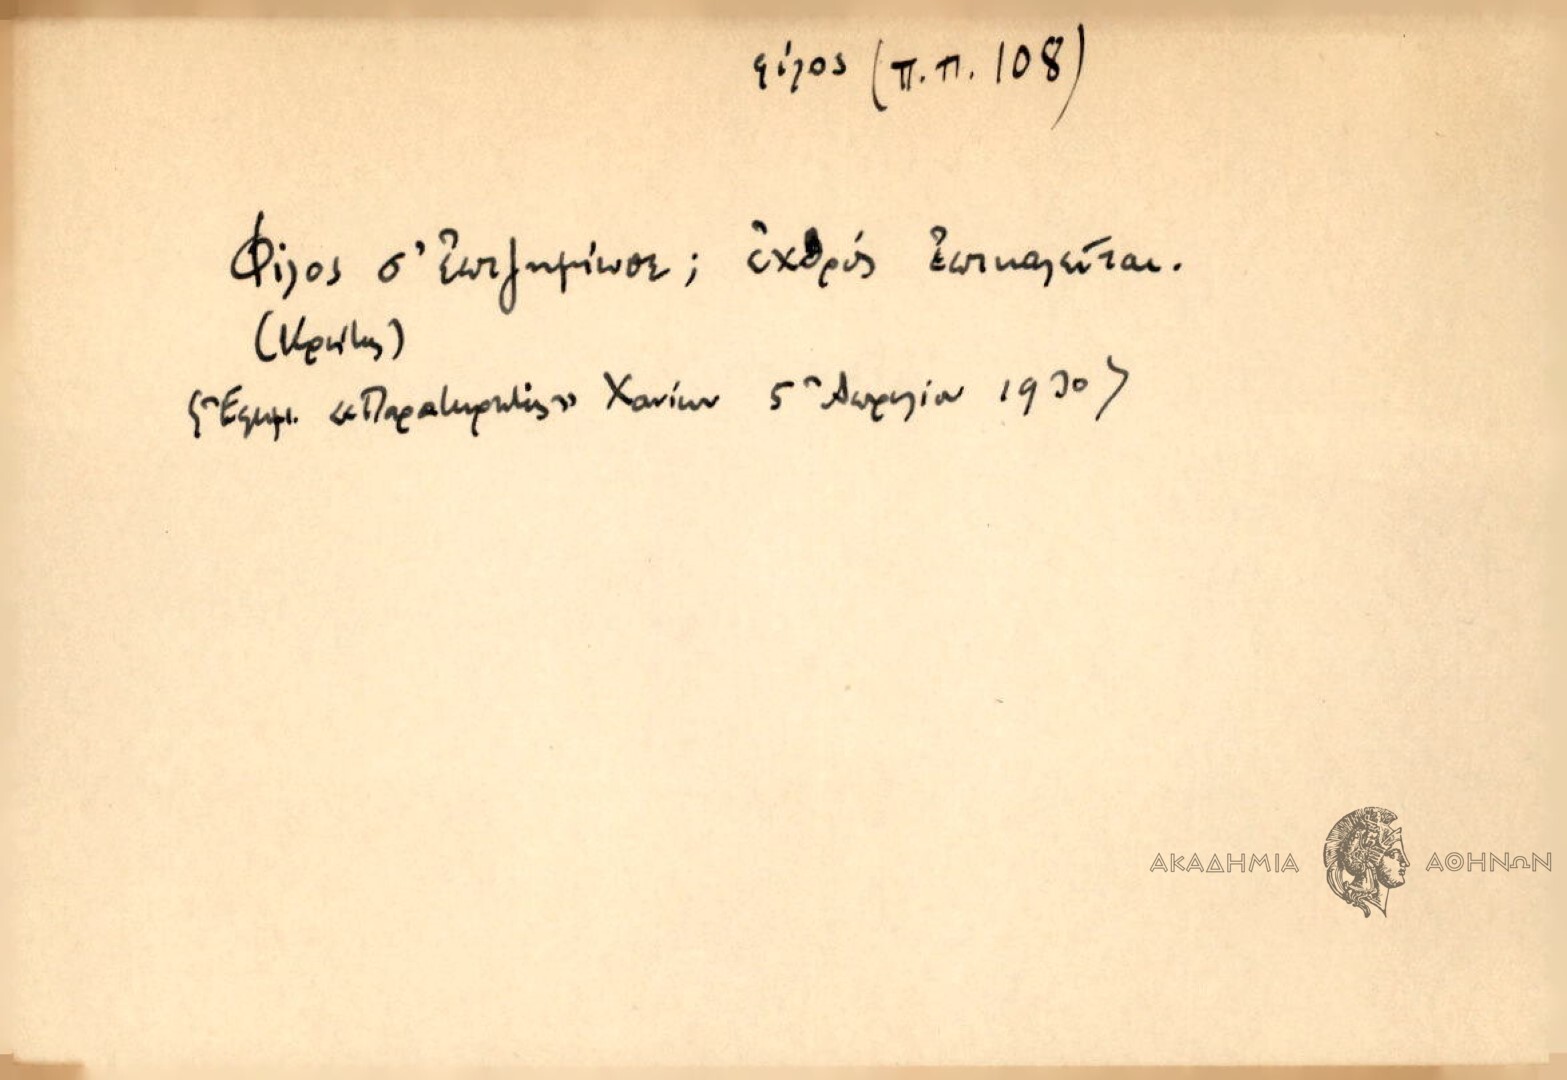 φίλος (π.π. 108)
Φίλος σ' ἐπιζημίωσε; ἐχθρός ἐπικαλεῖται.
(Κρήτης)
Ἐφημ. «Παρατηρητὴς» Χανίων 5 Ἀπριλίου 1930
ΑΚΑΔΗΜΙΑ ΑΘΗΝΩΝ